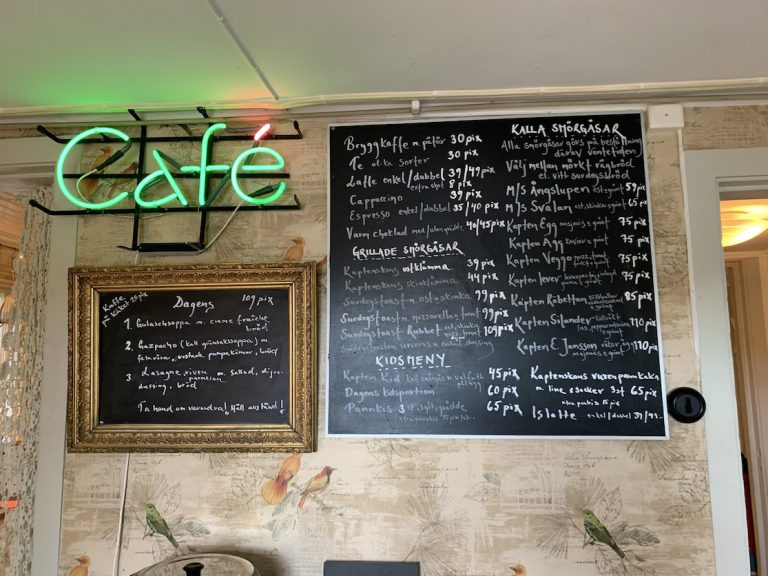 Café
Kaffe
på köket 25 pix
Dagens 109 pix
1. Gulaschsoppa m. creme fraiche,
bröd
2. Gazpacho (kall grönsakssoppa) m.
fetaost, rostade pumpakärnor, bröd
3. Lasagne, riven parmesan m. sallad, dijon-
dressing, bröd
Ta hand om varandra! Håll avstånd!
Bryggkaffe m. påtår 30 pix
Te olika sorter 30 pix
Latte enkel/dubbel 39/49 pix
extra shot 8 pix
Cappucino 39 pix
Espresso enkel/dubbel 35/40 pix
Varm choklad med/utan grädde 40/45 pix
GRILLADE SMÖRGÅSAR
Kaptenskens ostklämma 39 pix
Kaptenskens skinklämma 44 pix
Surdegstoast m. ost & skinka 99 pix
Surdegstoast m. mozzarella & tomat 99 pix
Surdegstoast Rabbel 109 pix
KIDSMENY
Kapten Kid 45 pix
Dagens kidsportion 60 pix
Pannkis 3 st sylt, grädde 65 pix
KALLA SMÖRGÅSAR
Alla smörgåsar görs på beställning
därav väntetiden!
Välj mellan mörkt rågbröd
el. vitt surdegsbröd
M/S Ängslupen ost & grönt 59 pix
M/S Svalan ost, skinka & grönt 65 pix
Kapten Ägg 75 pix
Kapten Agg kaviar & grönt 75 pix
Kapten Veggo 75 pix
Kapten Lever 75 pix
Kapten Köbettan 85 pix
Kapten Silander 110 pix
Kapten E. Jansson 110 pix
Kaptenskans vuxenpannkaka
m. lime & socker 3 st 65 pix
extra pankis 15 pix
Islatte enkel/dubbel 39/49:-